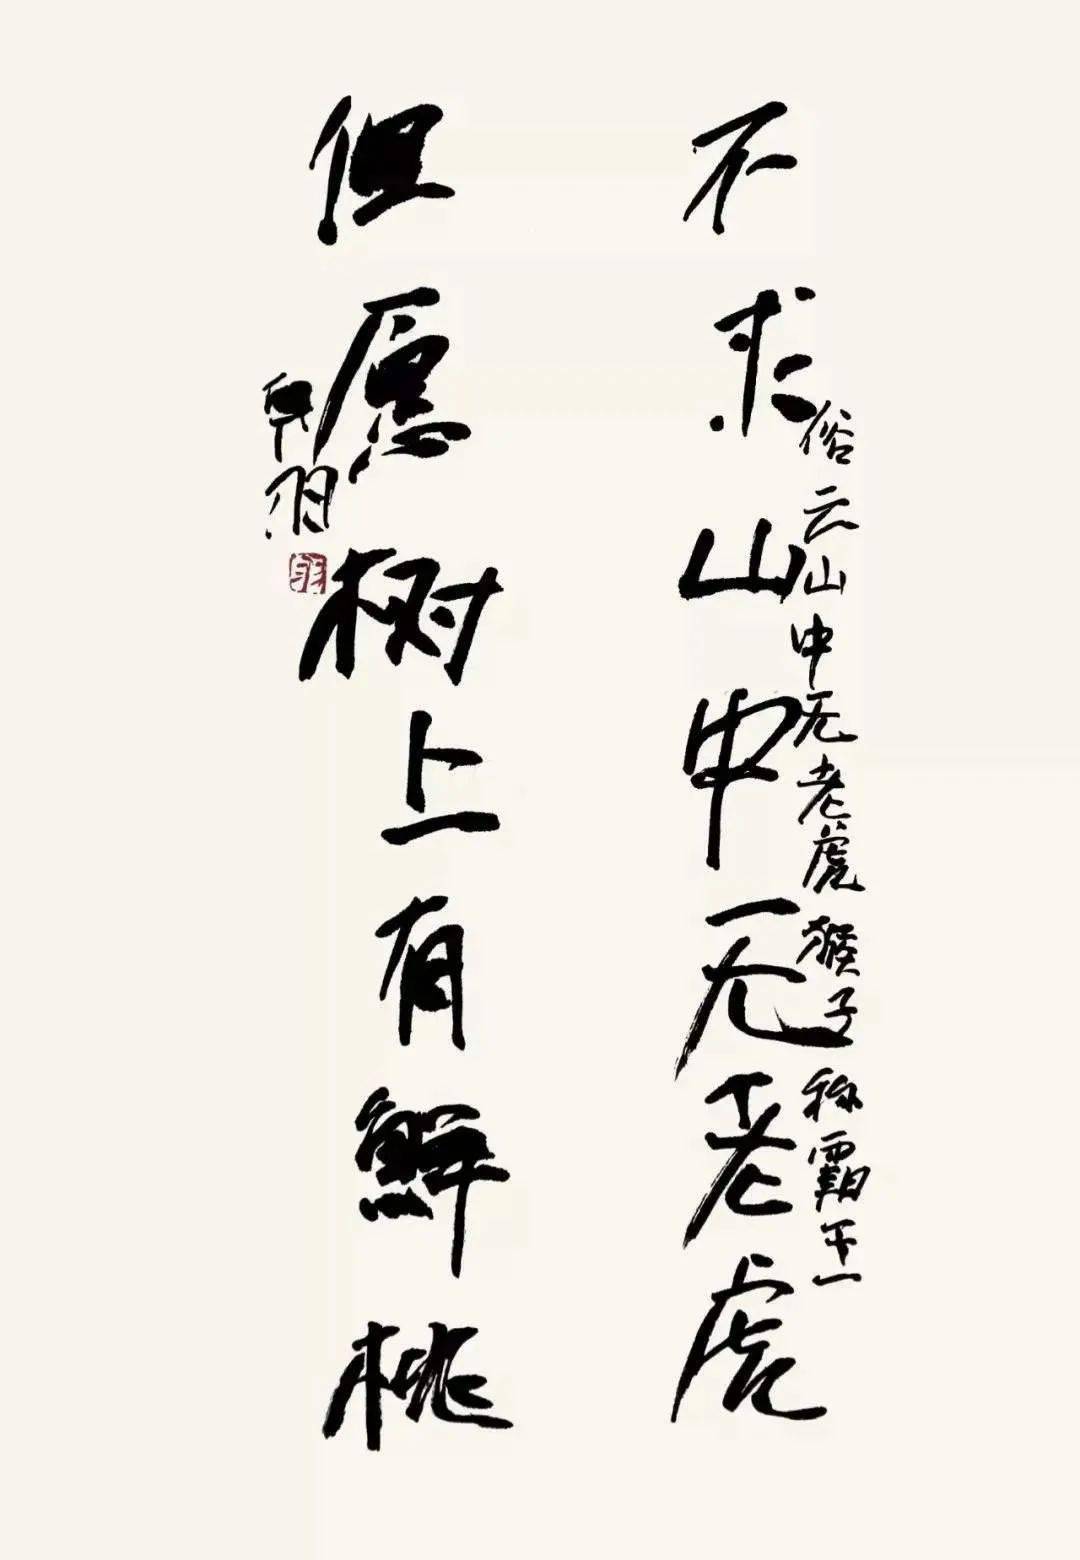 不求山中无老虎
俗云山中无老虎猴子称霸王
但愿树上有鲜桃